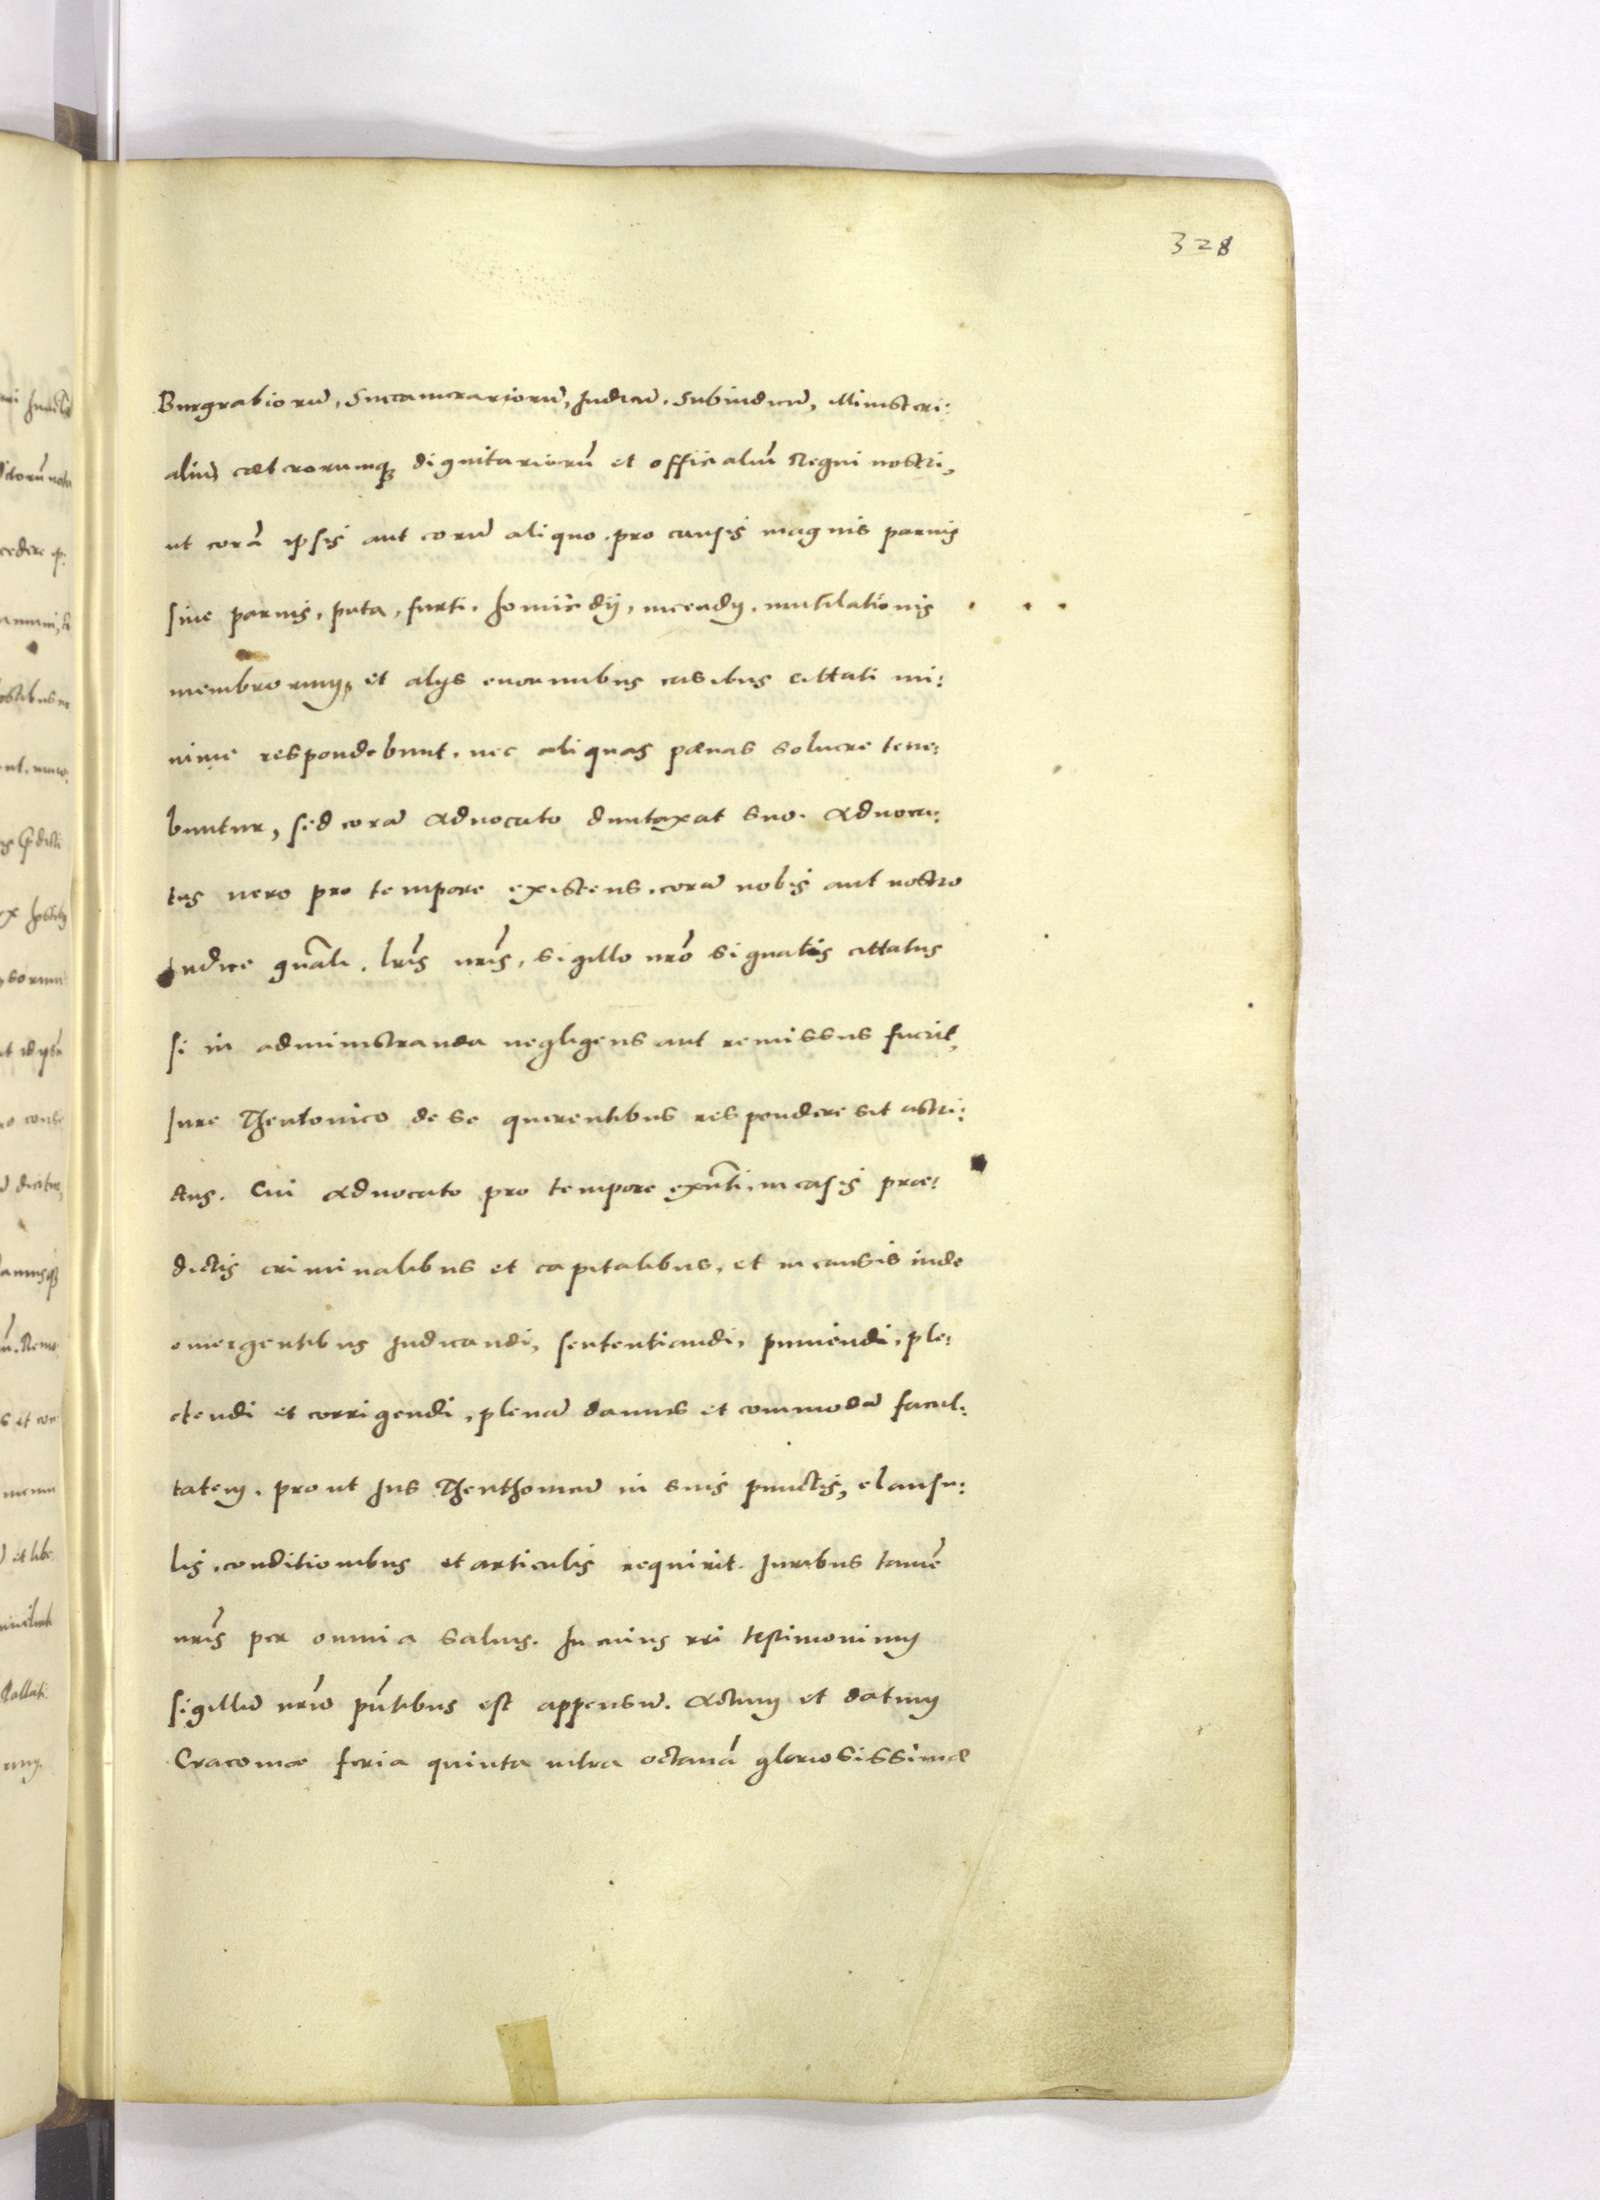 328
Burgrabiorũ, Succamerariorũ, Judicũ, Subiudicũ, Ministeri:
aliũ, cæterorumq; dignitariorũ et officialiũ Regni nostri,
ut corã ipsis aut eorũ aliquo, pro causis magnis parvis
siue parnis, puta, furti, homicidij, incendij, mutilationis
membrorum, et alijs enormibus casibus cittati mi:
nime respondebunt, nec aliquas pœnas soluere tene:
buntur, sed corã Aduocato duntaxat suo. Aduoca:
tus uero pro tempore existens, corã nobis aut nostro
Judice gñali, lris̃ nris̃, sigillo nrõ signatis cittatus
si in administranda negligens aut remissus fuerit,
Jure Theutonico de se querentibus respondere sit astri:
ctus. Cui Aduocato pro tempore exñti, in casis præ:
dictis criminalibus et capitalibus, et in causis inde
emergentibus Judicandi, sententiandi, puniendi, ple:
ctendi et corrigendi, plenã damus et commodã facul:
tatem, prout Jus Theuthonicũ in suis punctis, clausu:
lis, conditionibus et articulis requirit. Juribus tamẽ
nris̃ per omnia saluis. In cuius rei testimonium
sigillũ nrũ pñtibus est appensũ. Actum et datum
Cracoviæ feria quinta infra octavã gloriosissimæ